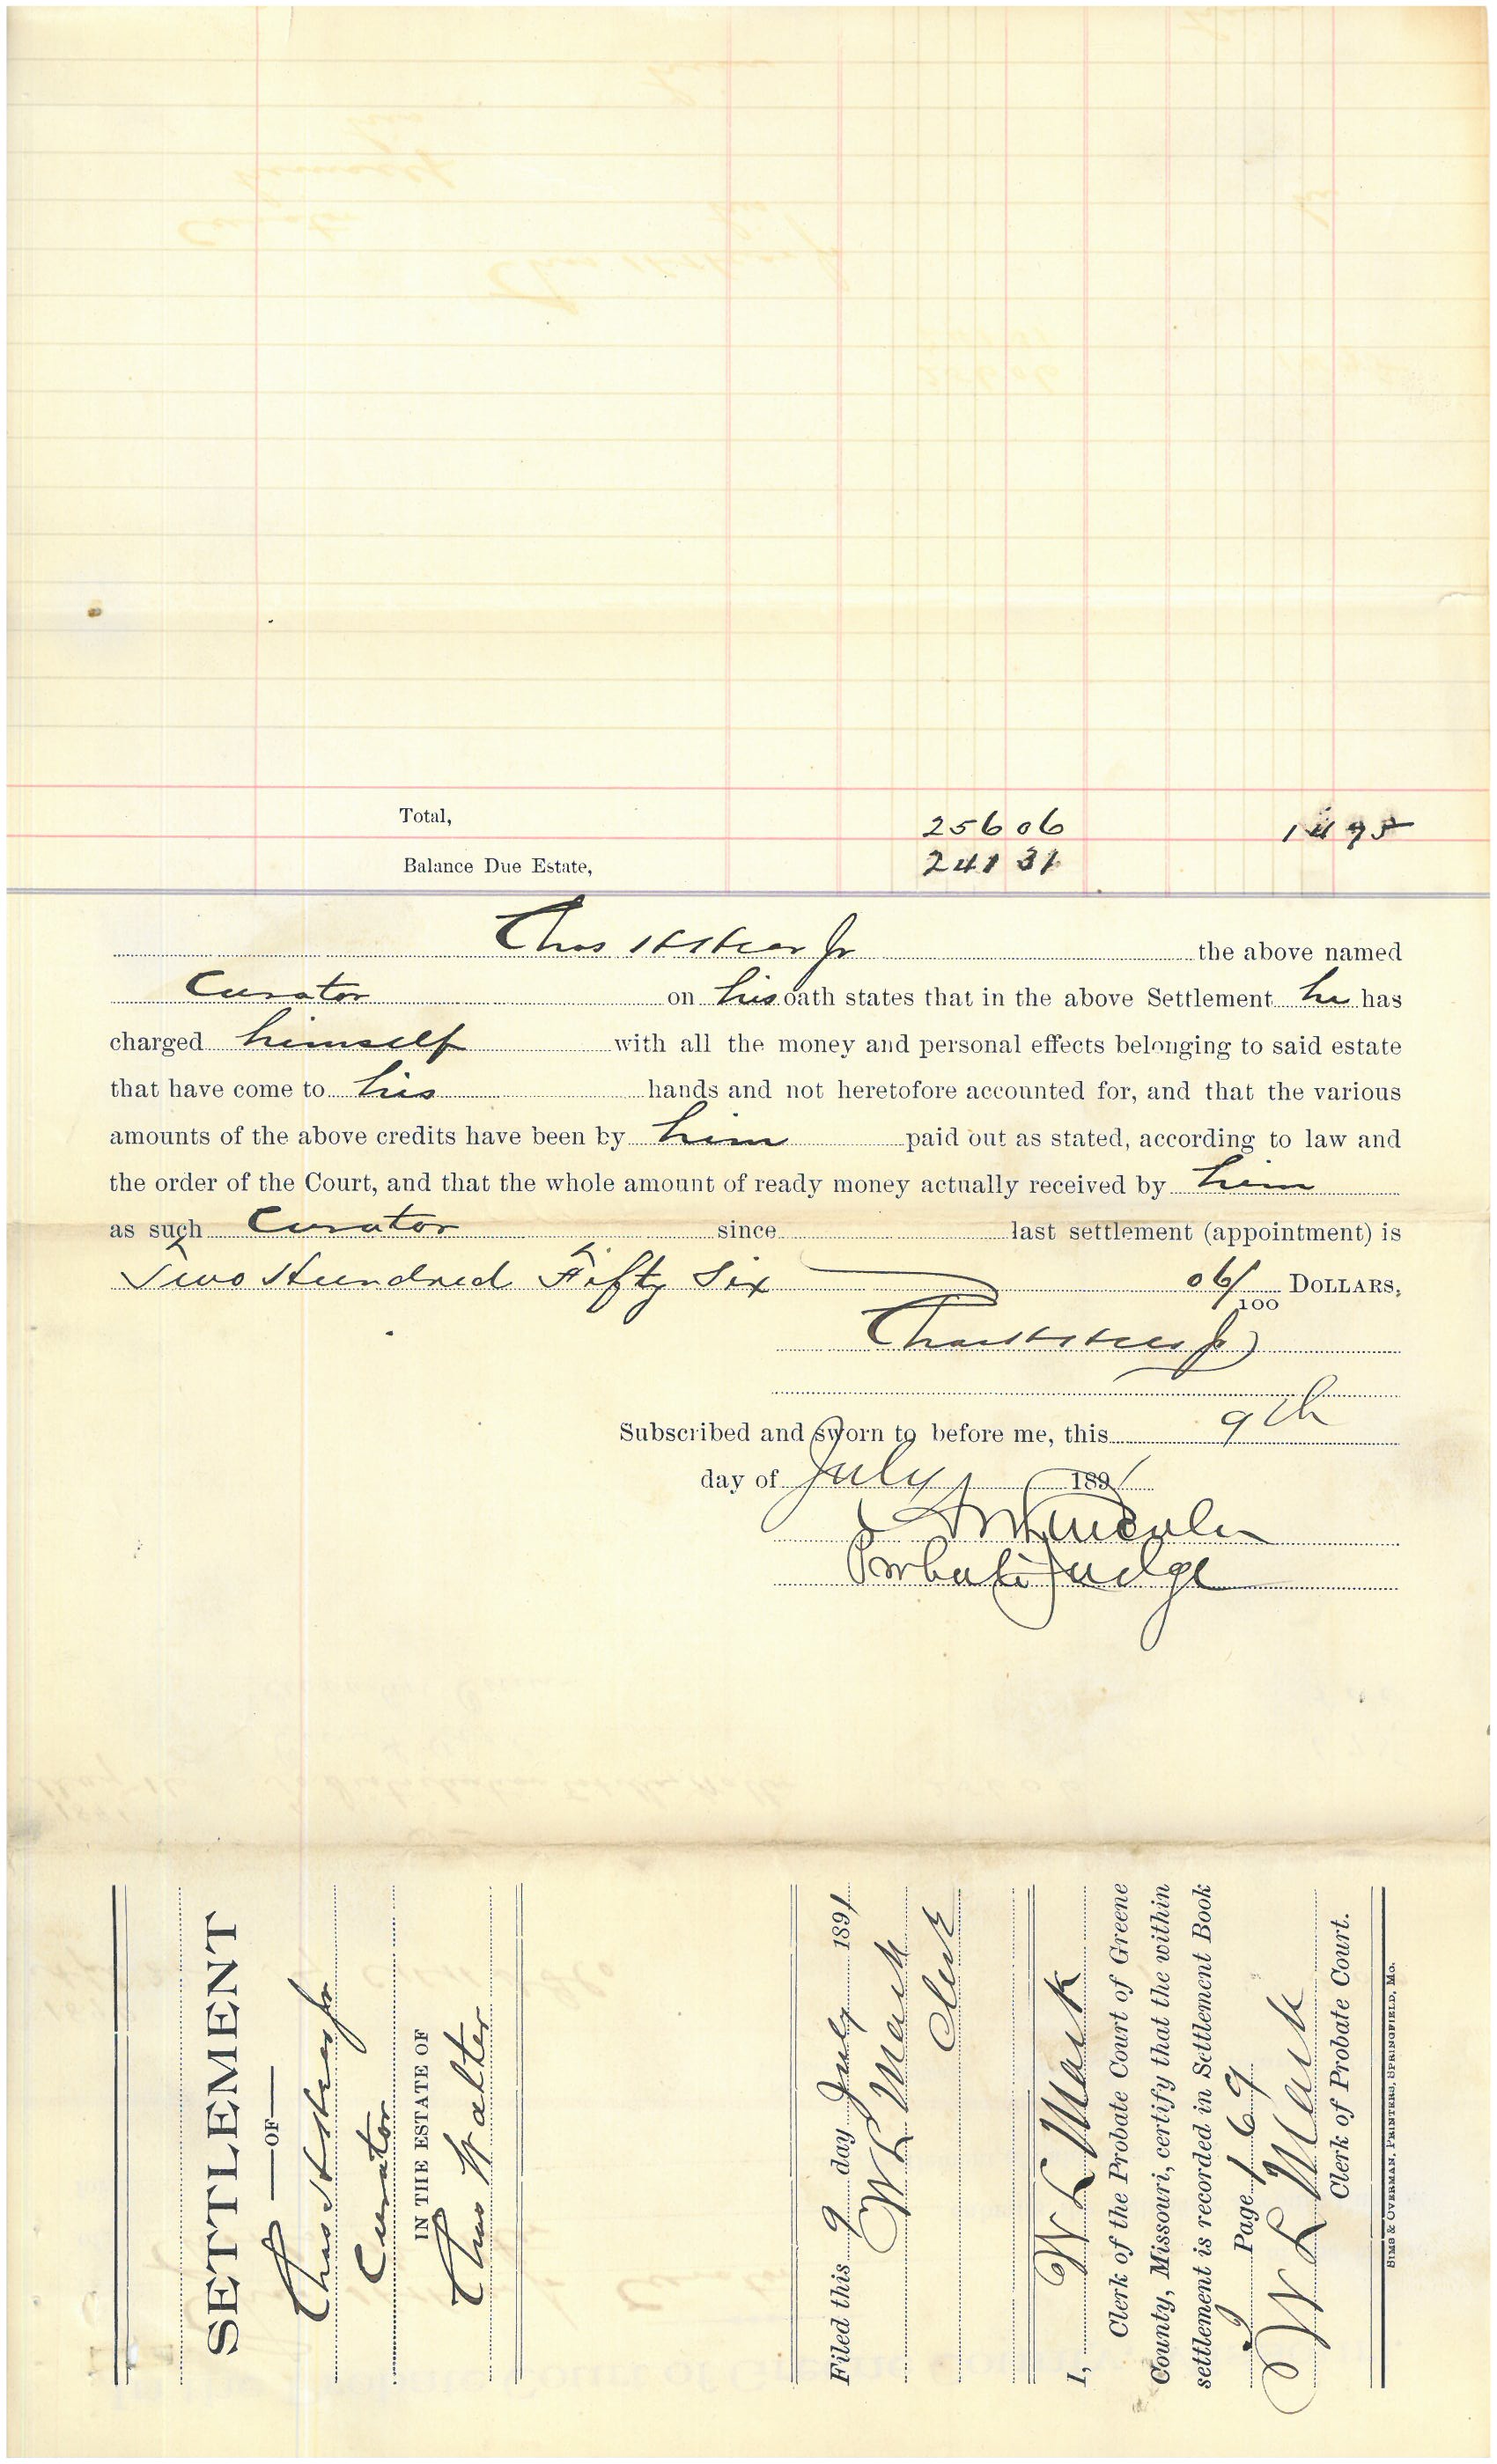 Total, 256 06 14 95
Balance Due Estate, 241 31
Chas Jr the above named
Curator on his oath states that in the above Settlement he has
charged himself with all the money and personal effects belonging to said estate
that have come to his hands and not heretofore accounted for, and that the various
amounts of the above credits have been by him paid out as stated, according to law and
the order of the Court, and that the whole amount of ready money actually received by him
as such Curator since last settlement (appointment) is
Two Hundred Fifty Six 06/100 DOLLARS,
Chas Jr
Subscribed and sworn to before me, this 9th
day of July 1891
Probate Judge
SETTLEMENT
OF
Chas Jr
Curator
IN THE ESTATE OF
Chas Walter
Filed this 9 day July 1891
W L Mack
Clerk
I, W L Mack
Clerk of the Probate Court of Greene
County, Missouri, certify that the within
settlement is recorded in Settlement Book
Page 169
W L Mack
Clerk of Probate Court.
SIMS & OVERMAN, PRINTERS, SPRINGFIELD, MO.